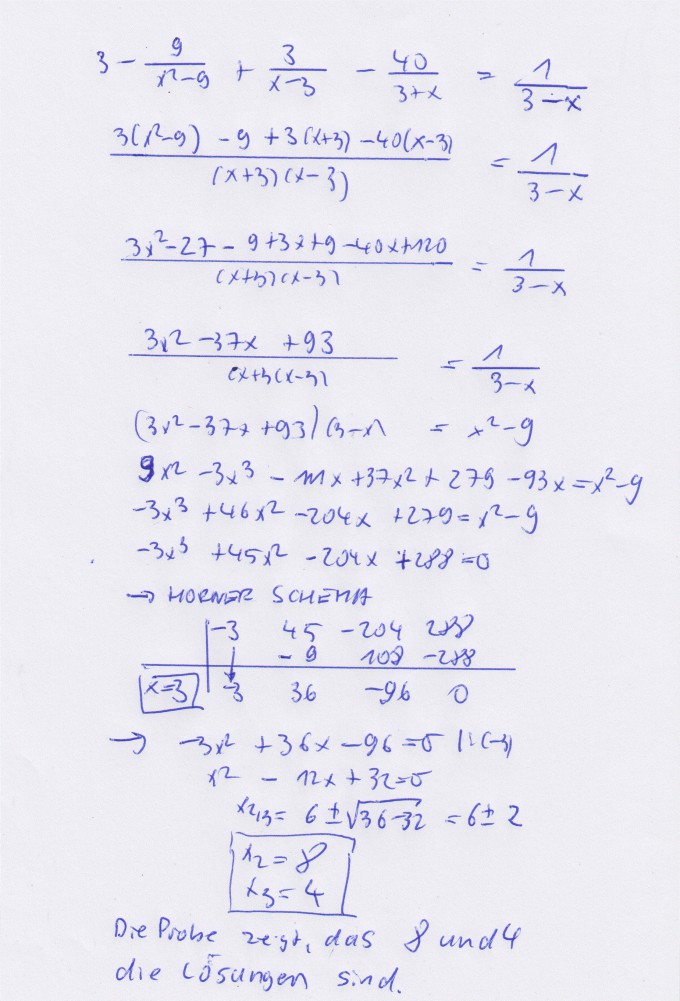 3 - 9/(x²-9) + 3/(x-3) - 40/(3+x) = 1/(3-x)
(3(x²-9) -9 +3(x+3) -40(x-3))/((x+3)(x-3)) = 1/(3-x)
(3x²-27 - 9+3x+9-40x+120)/((x+3)(x-3)) = 1/(3-x)
(3x² -37x +93)/((x+3)(x-3)) = 1/(3-x)
(3x²-37x+93)(3-x) = x²-9
9x² -3x³ -111x +37x² + 279 -93x = x²-9
-3x³ +46x² -204x +279 = x²-9
-3x³ +45x² -204x +288 = 0
→ HORNER SCHEMA
-3 45 -204 288
-9 108 -288
x=3 -3 36 -96 0
→ -3x² +36x -96 = 0 |:(-3)
x² - 12x + 32 = 0
x2,3 = 6 ± √36-32 = 6 ± 2
x₂ = 8
x₃ = 4
Die Probe zeigt, das 8 und 4
die Lösungen sind.